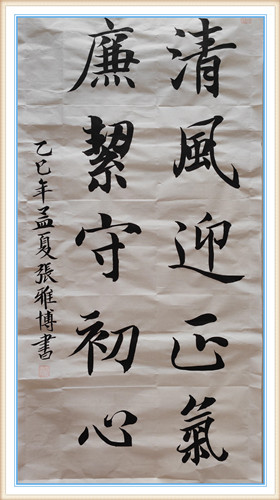 清風迎正氣
廉潔守初心
乙巳年孟夏張雅博書